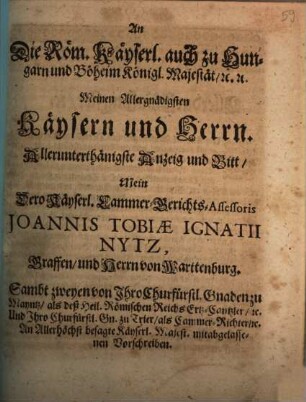 59
An
Die Röm. Käyserl. auch zu Hun-
garn und Böheim Königl. Majestät/ ꝛc. ꝛc.
Meinen Allergnädigsten
Käysern und Herrn.
Allerunterthänigste Anzeig und Bitt/
Mein
Dero Käyserl. Cammer-Gerichts-Assessoris
JOANNIS TOBIÆ IGNATII
NYTZ,
Graffen/ und Herrn von Waritenburg.
Sambt zweyen von Ihro Churfürstl. Gnaden zu
Mayntz/ als deß Heil. Römschen Reichs Ertz-Cantzler/ ꝛc.
Und Ihro Churfürstl. Gn. zu Trier/ als Cammer-Richter/ꝛc.
An Allerhöchst besagte Käyserl. Majest. mitabgelasse-
nen Vorschreiben.